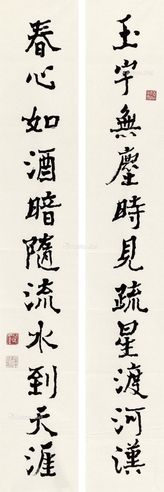 玉宇無塵時見疏星渡河漢
春心如酒暗隨流水到天涯